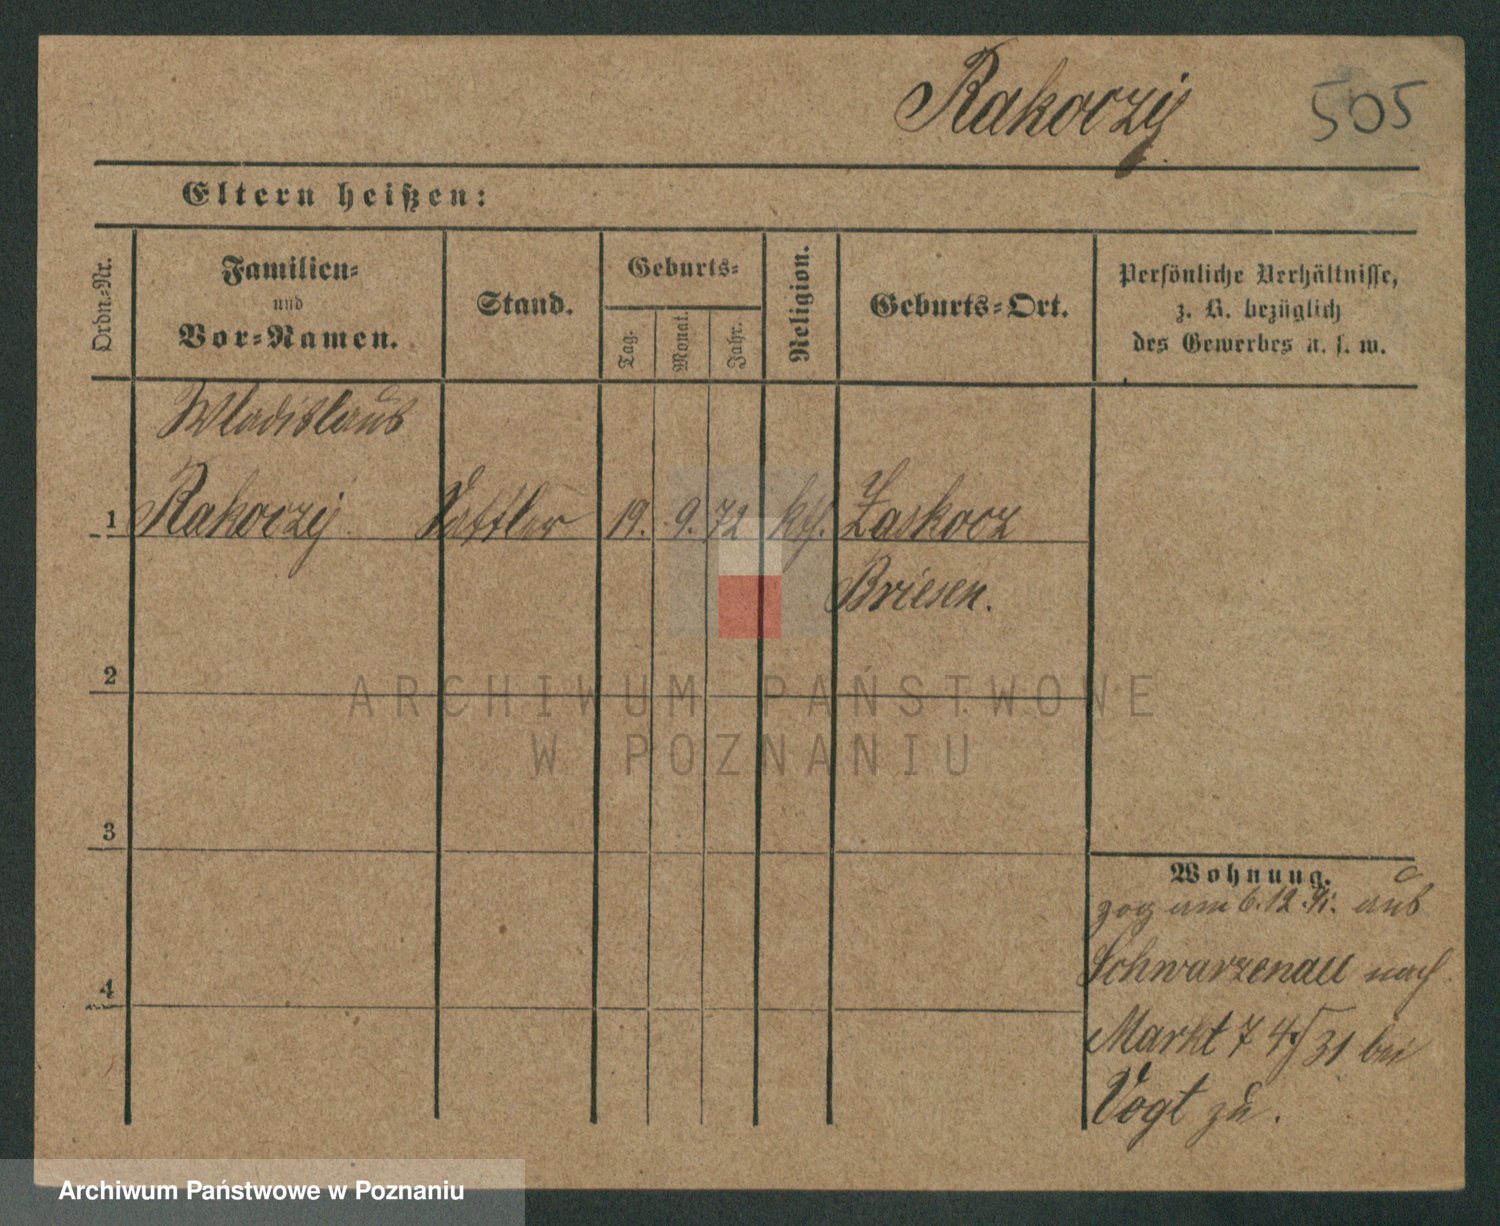 Rakoczij 505
Eltern heißen:
Ordn.-Nr.
Familien-
und
Vor-Namen.
Stand.
Geburts-
Tag.
Monat.
Jahr.
Religion.
Geburts-Ort.
Persönliche Verhältnisse,
z. B. bezüglich
des Gewerbes u. s. w.
Wladislaus
1 Rakoczij Sattler 19. 9. 72 kth. Zaskocz
Briesen.
2
ARCHIWUM PAŃSTWOWE
W POZNANIU
3
Wohnung.
zog am 6.12.91. aus
Schwarzenau nach
4
Markt 74/31 bei
Vogt zu.
Archiwum Państwowe w Poznaniu